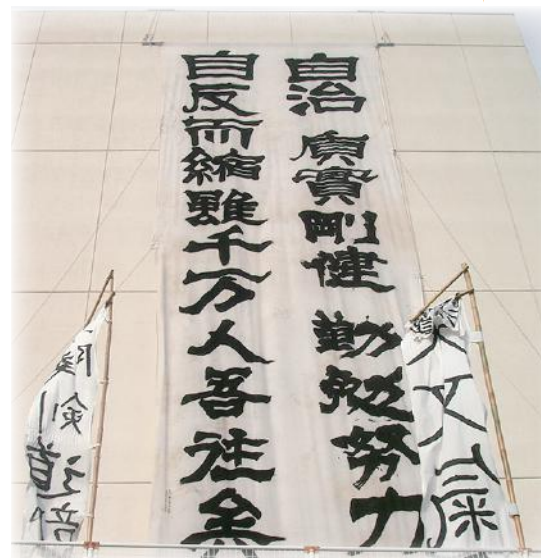 自治 質實剛健 勤勉努力
自反而縮雖千万人吾往矣
剣道部